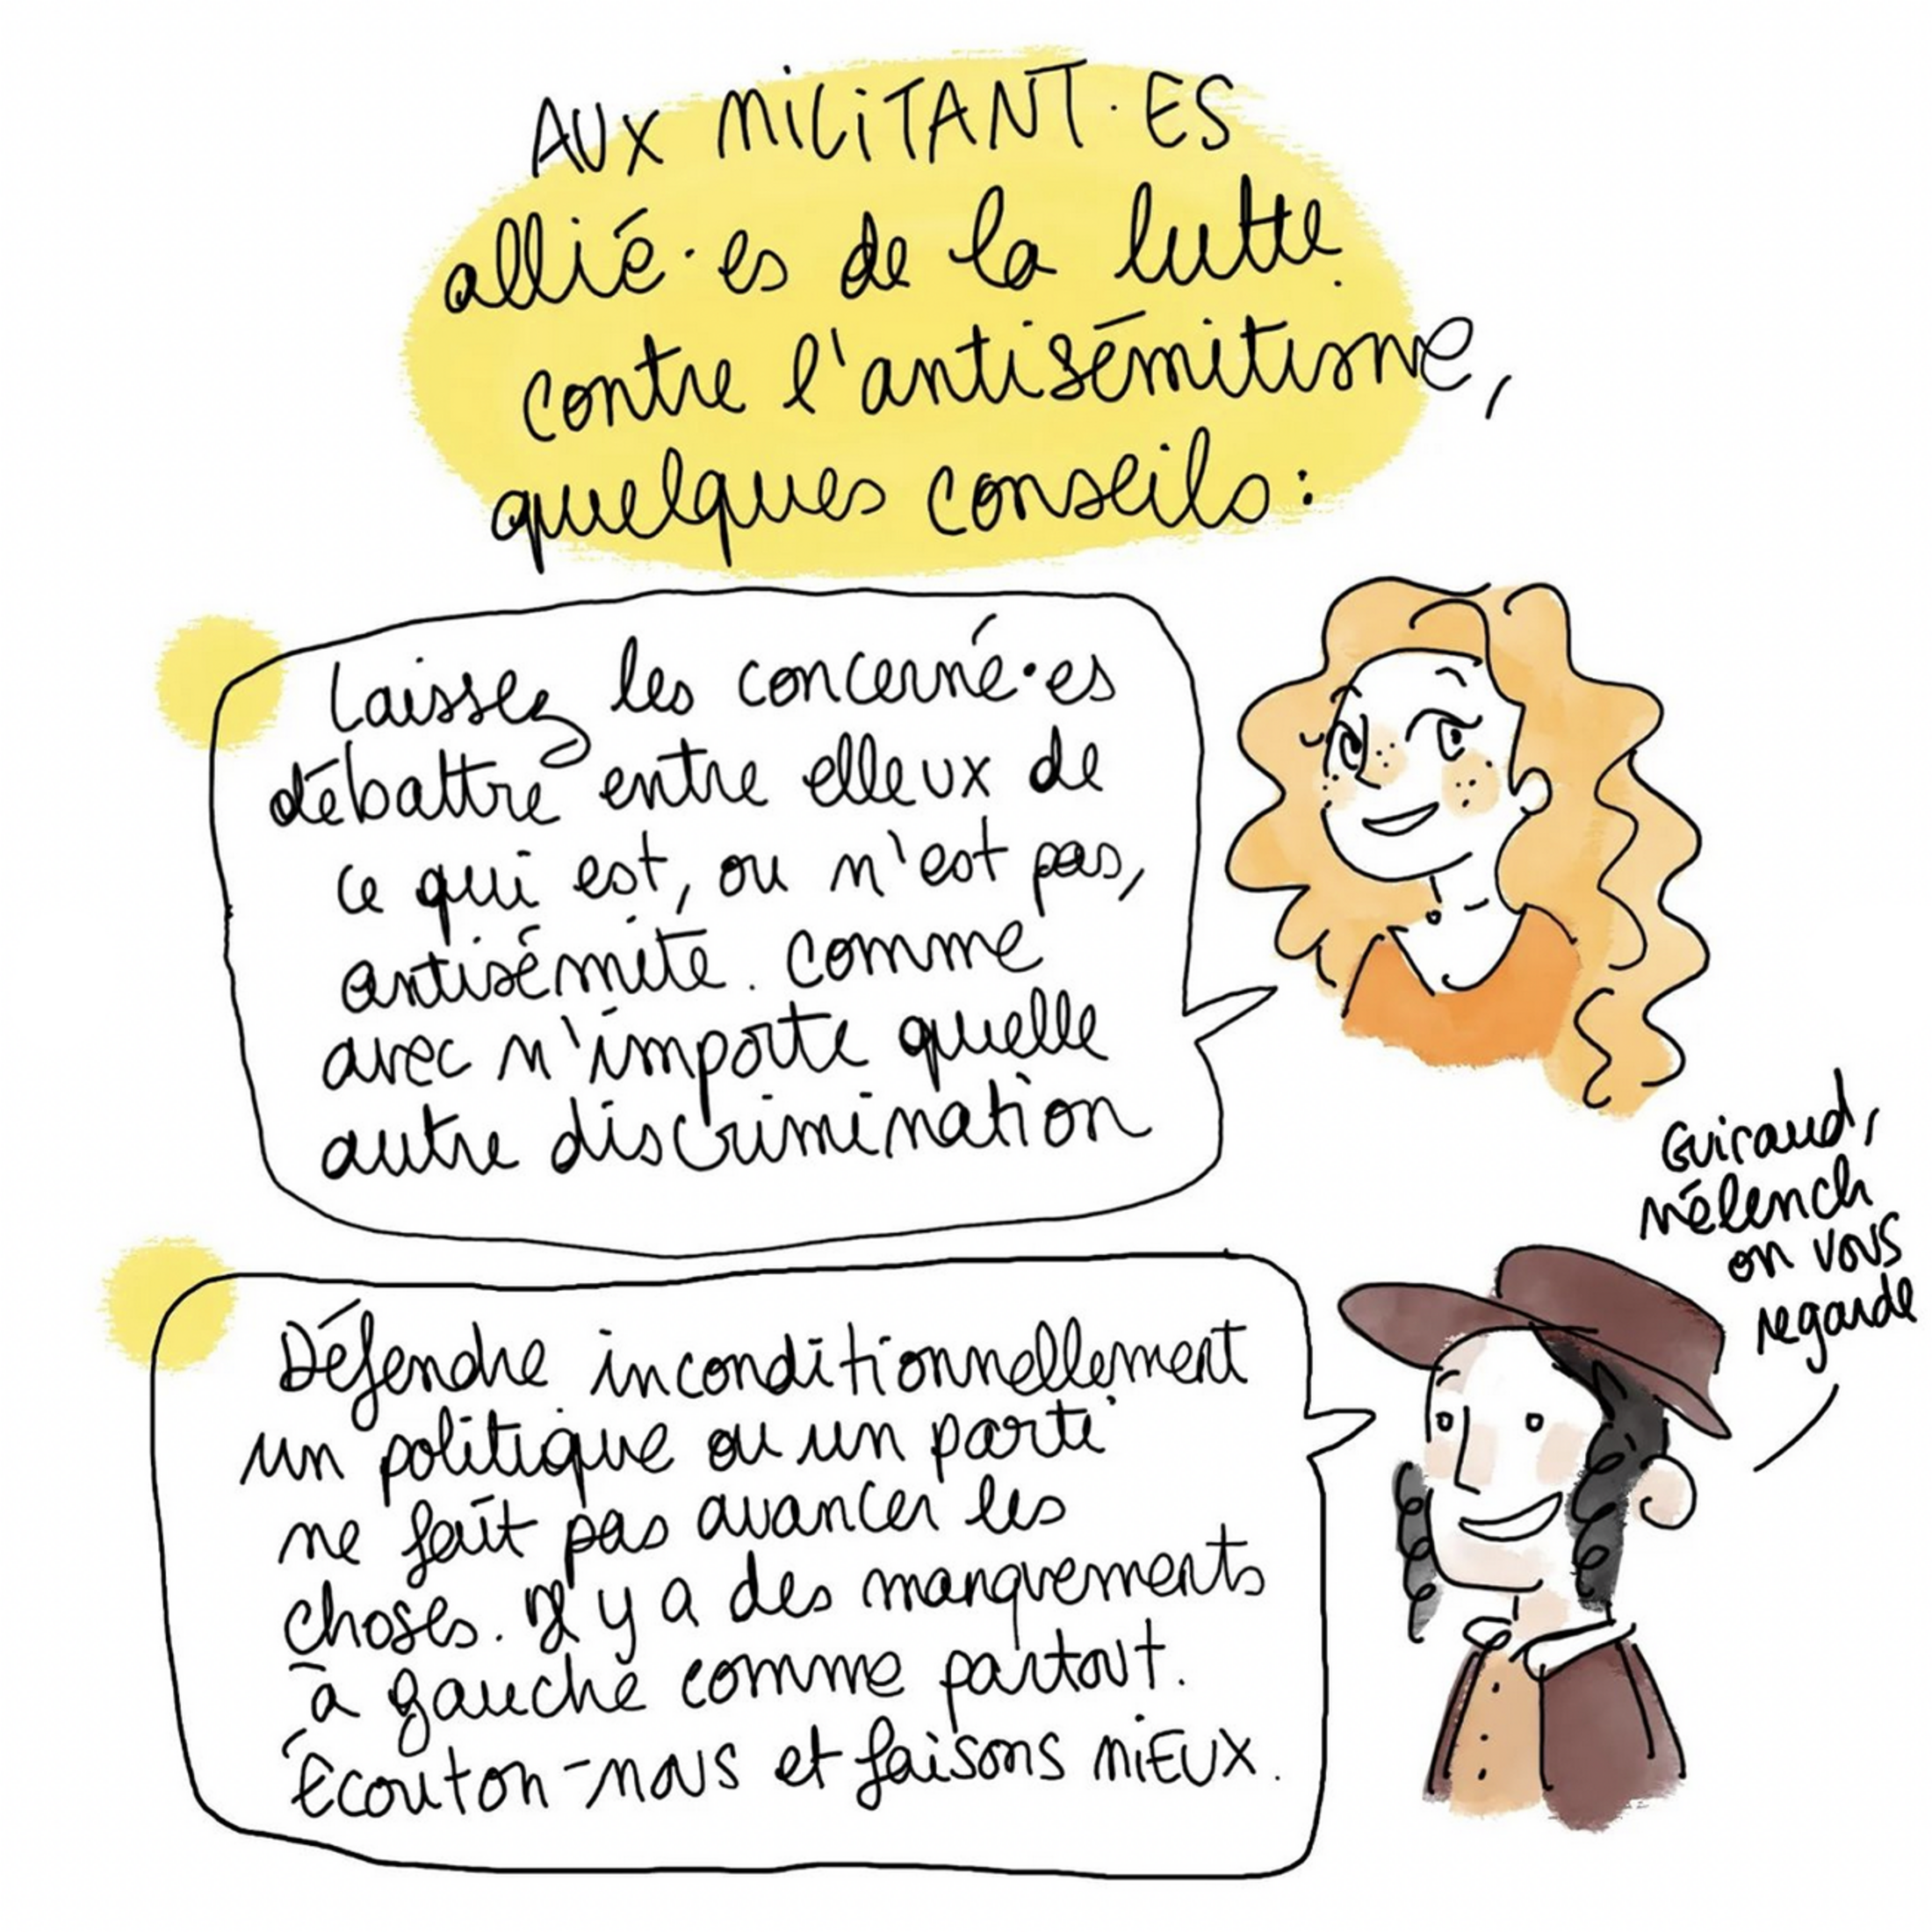 AUX MILITANT·ES
allié·es de la lutte
contre l'antisémitisme,
quelques conseils:
Laissez les concerné·es
débattre entre elleux de
ce qui est, ou n'est pas,
antisémite. Comme
avec n'importe quelle
autre discrimination
Guiraud,
Mélench
on vous
regarde
Défendre inconditionnellement
un politique ou un parti
ne fait pas avancer les
choses. Il y a des manquements
à gauche comme partout.
Écouton-nous et faisons MIEUX.